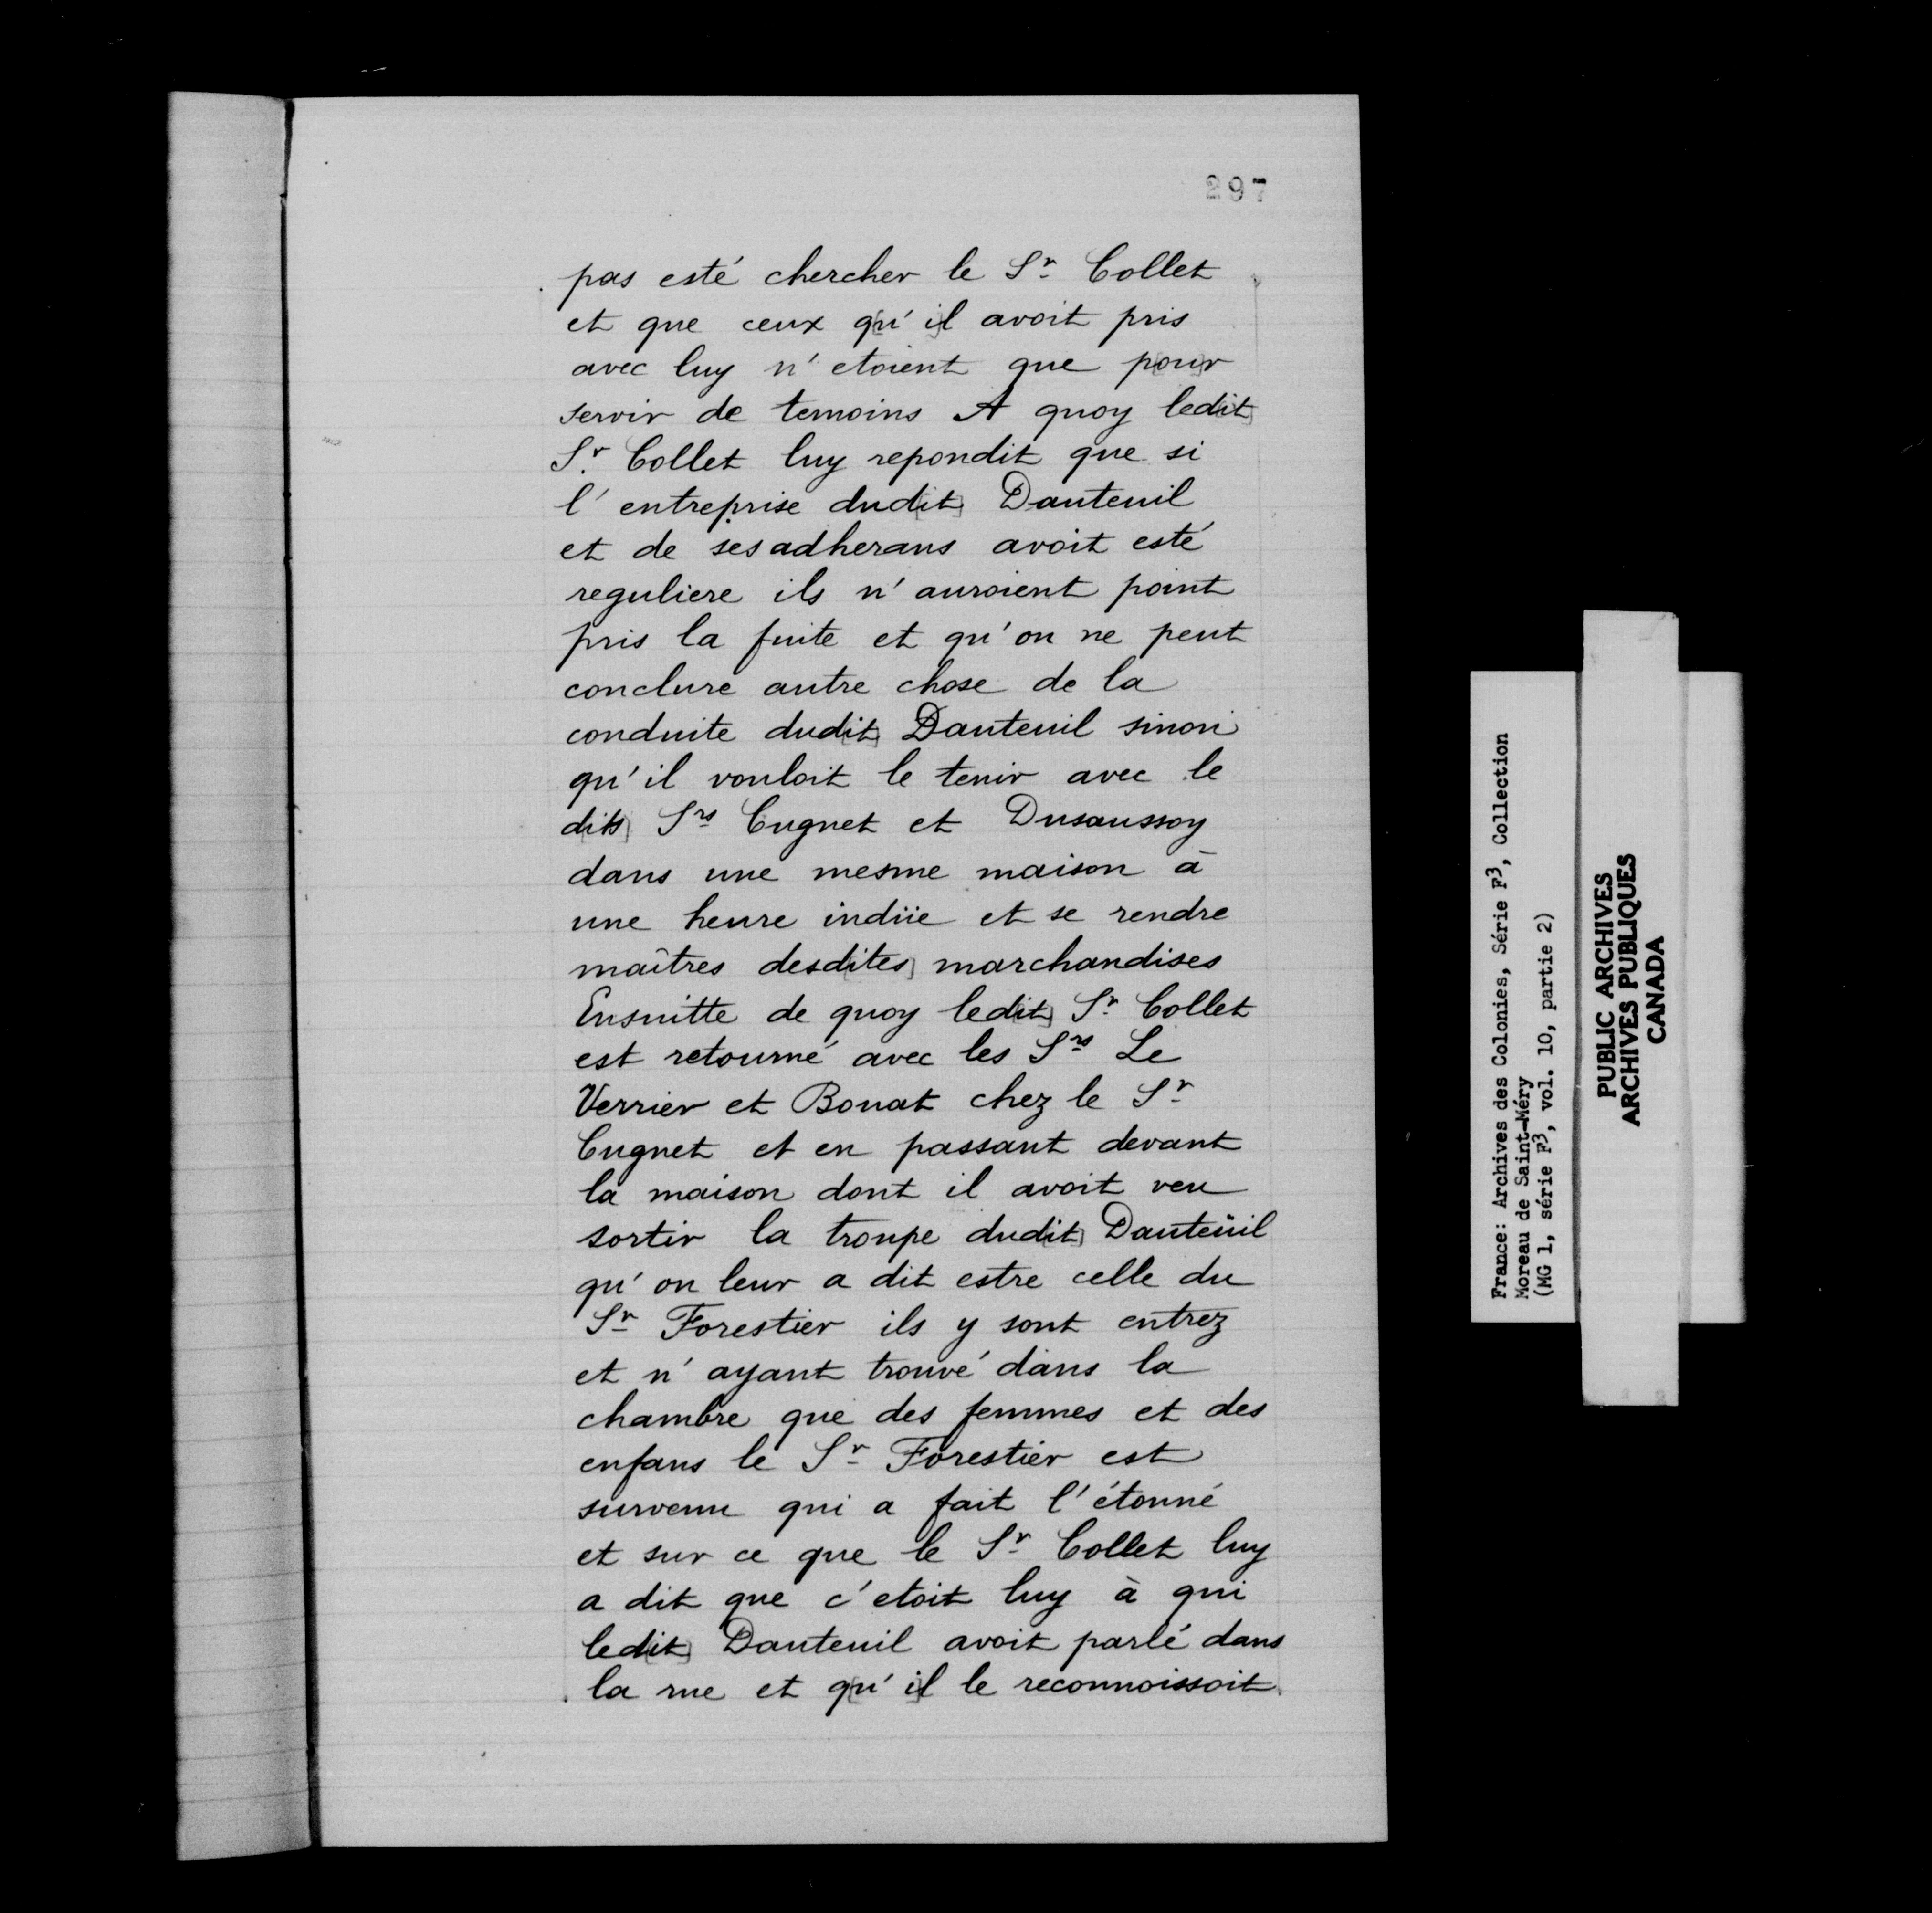 297
pas esté chercher le Sr Collet
et que ceux q[u'i]l avoit pris
avec luy n'etoient que p[ou]r
servir de temoins A quoy led[it]
Sr Collet luy repondit que si
l'entreprise dud[it] Dauteuil
et de ses adherans avoit esté
reguliere ils n'auroient point
pris la fuite et qu'on ne peut
conclure autre chose de la
conduite dud[it] Dauteuil sinon
qu'il vouloit le tenir avec le
d[its] Srs Cugnet et Dusaussoy
dans une mesme maison à
une heure indüe et se rendre
maîtres desd[ites] marchandises
Ensuitte de quoy led[it] Sr Collet
est retourné avec les Srs Le
Verrier et Bonat chez le Sr
Cugnet et en passant devant
la maison dont il avoit veu
sortir la troupe dud[it] Dauteüil
qu'on leur a dit estre celle du
Sr Forestier ils y sont entrez
et n'ayant trouvé dans la
chambre que des femmes et des
enfans le Sr Forestier est
survenu qui a fait l'étonné
et sur ce que le Sr Collet luy
a dit que c'etoit luy à qui
led[it] Dauteuil avoit parlé dans
la rue et q[u'i]l le reconnoissoit
France: Archives des Colonies, Série F3, Collection
Moreau de Saint-Méry
(MG 1, série F3, vol. 10, partie 2)
PUBLIC ARCHIVES
ARCHIVES PUBLIQUES
CANADA